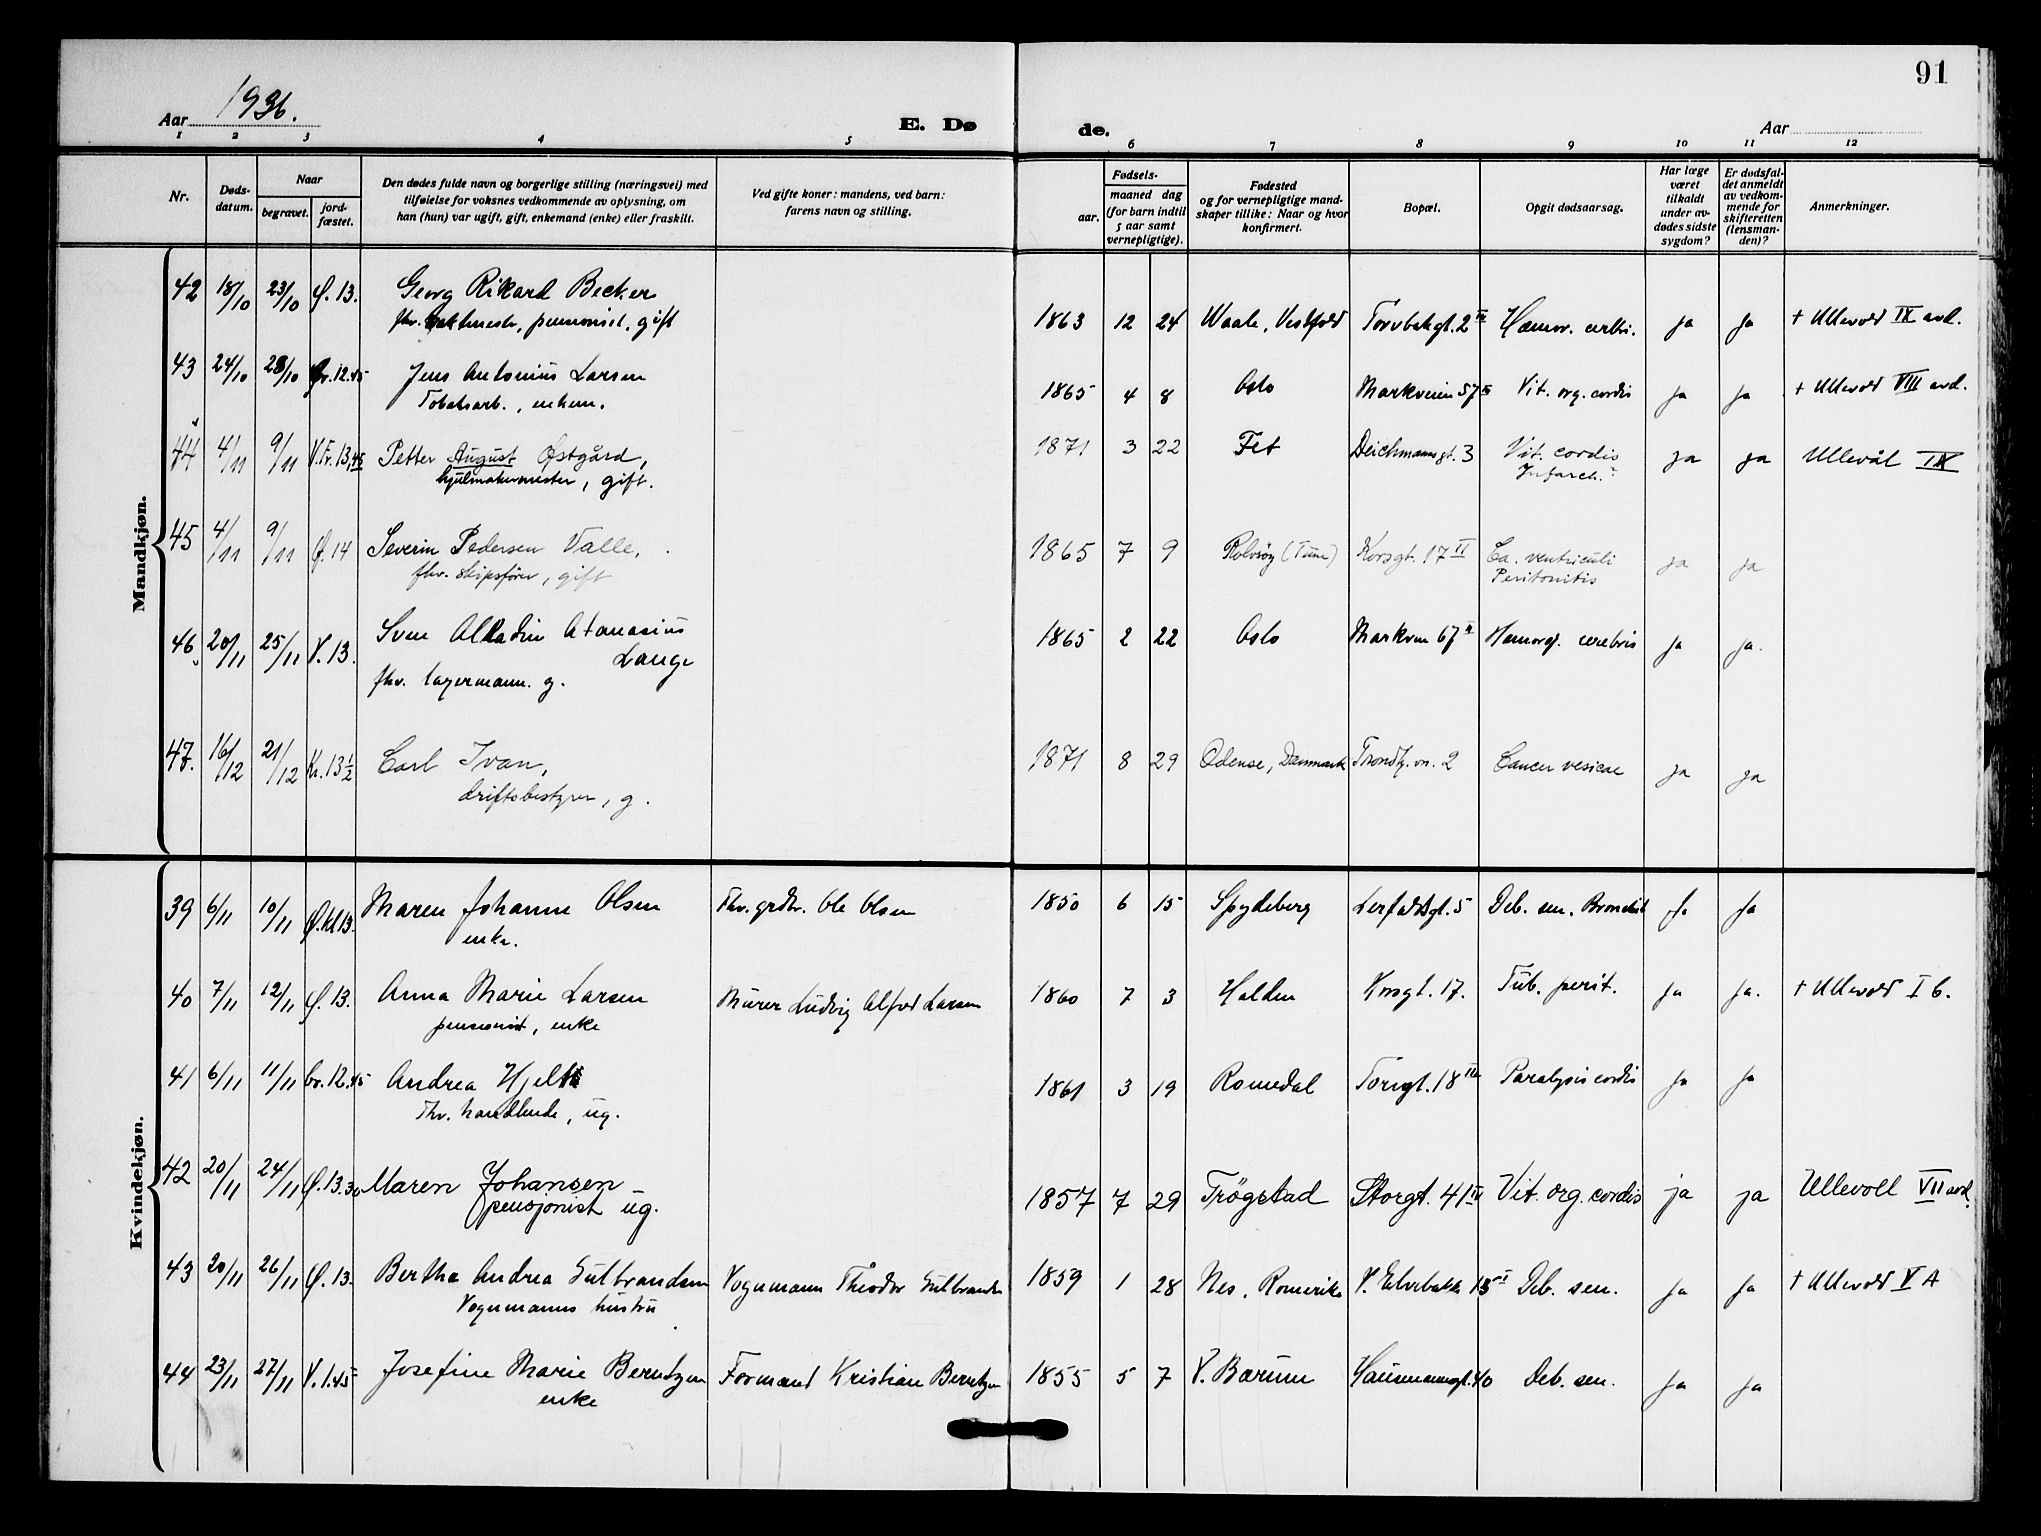 91
Aar 1936.
E. Dø de.
Aar
1 2 3 4 5 6 7 8 9 10 11 12
Nr.
Døds-
datum.
Naar
begravet.
jord-
fæstet.
Den dødes fulde navn og borgerlige stilling (næringsvei) med
tilføielse for voksnes vedkommende av oplysning, om
han (hun) var ugift, gift, enkemand (enke) eller fraskilt.
Ved gifte koner: mandens, ved barn:
farens navn og stilling.
Fødsels-
aar.
maaned dag
(for barn indtil
5 aar samt
vernepligtige).
Fødested
og for vernepligtige mand-
skaper tillike: Naar og hvor
konfirmert.
Bopæl.
Opgit dødsaarsag.
Har læge
været
tilkaldt
under av-
dødes sidste
sygdom?
Er dødsfal-
det anmeldt
av vedkom-
mende for
skifteretten
(lensman-
den)?
Anmerkninger.
Mandkjøn.
42 18/10 23/10 Ø. 13. Georg Rikard Becker 1863 12 24 Waale, Vestfold 2 Hæmor. ja ja + Ullevold IX avd.
fhv. pensionist, gift
43 24/10 28/10 12.45 Jens Antonius Larsen 1865 4 8 Oslo Markveien 57 Vit. org. cordis ja ja + Ullevold VIII avd.
Tobaksarb., enkem.
44 4/11 9/11 V. Fr. 13,45 Petter August Østgård, 1871 3 22 Fet Deichmansgt. 3 Vit. cordis ja ja Ullevål IX
hjulmakermester, gift. Infarct.?
45 4/11 9/11 Ø. 14 Severin Pedersen Valle, 1865 7 9 Rolvsøy (Tune) Korsgt. 17 II Ca. ventriculi ja ja
fhv. skipsfører, gift Peritonitis
46 20/11 25/11 V. 13. Sven Alladin Atanasius 1865 2 22 Oslo Markven 67 Hemorg. cerebris ja ja.
Lange
fhv. lagermann. g.
47. 16/12 21/12 Kr. 13 1/2 Carl Ivan, 1871 8 29 Odense, Danmark Trondhj.vn. 2 Cancer vesicae ja ja
driftsbestyrer, g.
Kvindekjøn.
39 6/11 10/11 Ø. kl 13. Maren Johanne Olsen Fhv. grdbr. Ole Olsen 1850 6 15 Spydeberg Lerfaldsgt. 5 Deb. sen. Bronchit ja ja
enke.
40 7/11 12/11 Ø. 13. Anna Marie Larsen Murer Ludvig Alfred Larsen 1860 7 3 Halden Korsgt. 17. Tub. perit. ja ja. + Ullevold I b.
pensionist, enke
41 6/11 11/11 12.45 Andrea 1861 3 19 Romedal Torvgt. 18 Paralysis cordis ja ja
Fhv. handlende, ug.
42 20/11 24/11 Ø. 13.30 Maren Johansen 1857 7 29 Trögstad Storgt. 41 IV Vit. org. cordis ja ja Ullevoll VII avd.
pensjonist ug.
43 20/11 26/11 Ø. 13. Bertha Andrea Gulbrandsen Vognmann Theodor Gulbrandsen 1859 1 28 Nes, Romerike V. Elvebakke 15 I Deb. sen. ja ja + Ullevold V A
Vognmanns hustru
44 23/11 27/11 V. 1.45 Josefine Marie Berntzen Formand Kristian Berntzen 1855 5 7 V. Bærum Hausmannsgt. 40 Deb. sen. ja ja
enke